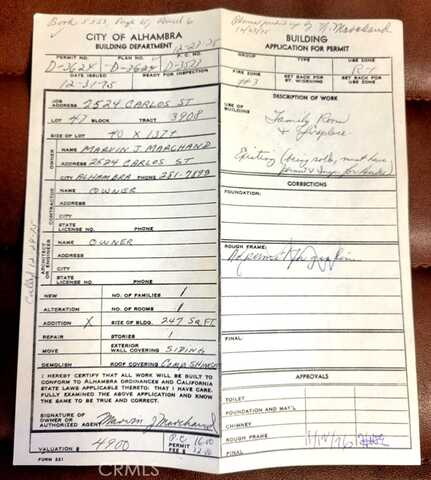 CITY OF ALHAMBRA
BUILDING DEPARTMENT
D-3624 D-3624 D-3521
DATE ISSUED READY FOR INSPECTION
12-31-75
JOB ADDRESS 2524 CARLOS ST
LOT 47 BLOCK TRACT 3908
SIZE OF LOT 40 X 137+
OWNER
NAME MARVIN J. MARCHAND
ADDRESS 2524 CARLOS ST
CITY ALHAMBRA PHONE 281-7899
CONTRACTOR
NAME OWNER
ADDRESS
CITY
STATE LICENSE NO. PHONE
ARCHITECT OR ENGINEER
NAME OWNER
ADDRESS
CITY
STATE LICENSE NO. PHONE
Called 12-29-75
NEW NO. OF FAMILIES 1
ALTERATION NO. OF ROOMS 1
ADDITION X SIZE OF BLDG. 247 SQ FT
REPAIR STORIES 1
MOVE EXTERIOR WALL COVERING SIDING
DEMOLISH ROOF COVERING COMP SHINGLE
I HEREBY CERTIFY THAT ALL WORK WILL BE BUILT TO
CONFORM TO ALHAMBRA ORDINANCES AND CALIFORNIA
STATE LAWS APPLICABLE THERETO: THAT I HAVE CAREFULLY
EXAMINED THE ABOVE APPLICATION AND KNOW
THE SAME TO BE TRUE AND CORRECT.
SIGNATURE OF
OWNER OR
AUTHORIZED AGENT Marvin J Marchand
VALUATION $ 4900 P.C. 16.00
PERMIT FEE $ 32.00
FORM 551
BUILDING
APPLICATION FOR PERMIT
GROUP TYPE USE ZONE
R-1
FIRE ZONE SET BACK BY WORKING SET BACK BY USE ZONE
#3
DESCRIPTION OF WORK
USE OF BUILDING
Family Room
& Fireplace
Existing (being sold, must have
CORRECTIONS
FOUNDATION:
ROUGH FRAME:
FINAL
APPROVALS
TOILET
FOUNDATION AND MAT'L
CHIMNEY
ROUGH FRAME
FINAL
CRMLS